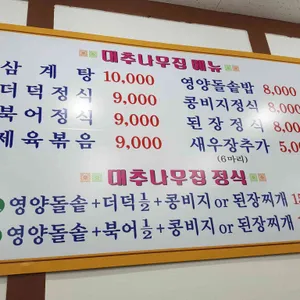 대추나무집 메뉴
삼계탕 10,000
더덕정식 9,000
북어정식 9,000
제육볶음 9,000
영양돌솥밥 8,000
콩비지정식 8,000
된장정식 8,000
새우장추가 5,000
(6마리)
대추나무집 정식
영양돌솥+더덕½+콩비지 or 된장찌개
영양돌솥+북어½+콩비지 or 된장찌개